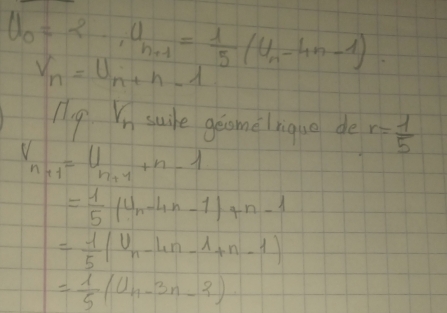 U₀ = 2 ... , Uₙ₊₁ = 1/5 (Uₙ - 4n - 1).
Vₙ = Uₙ + n - 1
) M.q. Vₙ suite géométrique de r = 1/5
Vₙ₊₁ = Uₙ₊₁ + n - 1
= 1/5 (Uₙ - 4n - 1) + n - 1
= 1/5 (Uₙ - 4n - 1 + n - 1)
= 1/5 (Uₙ - 3n - 2)